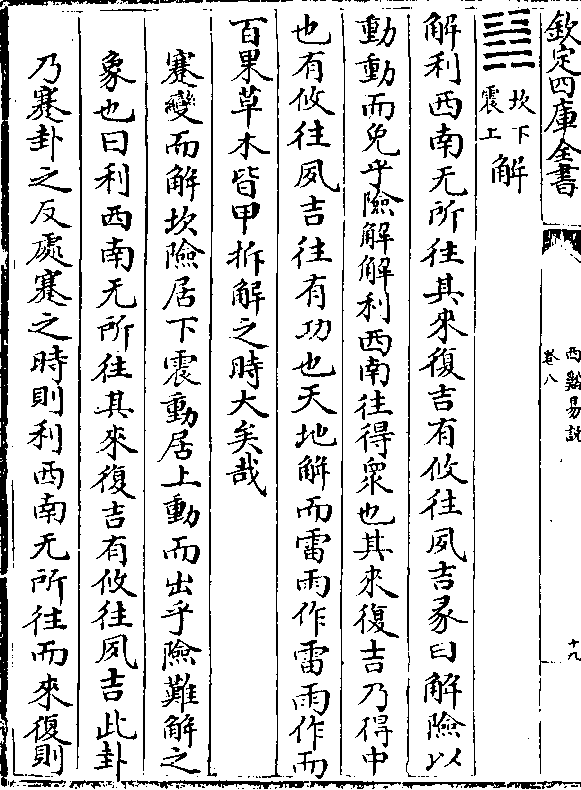 欽定四庫全書
西谿易説
卷八
十九
坎下
震上
解
解利西南无所往其來復吉有攸往夙吉彖曰解險以
動動而免乎險解解利西南往得衆也其來復吉乃得中
也有攸往夙吉往有功也天地解而雷雨作雷雨作而
百果草木皆甲拆解之時大矣哉
蹇變而解坎險居下震動居上動而出乎險難解之
象也曰利西南无所往其來復吉有攸往夙吉此卦
乃蹇卦之反處蹇之時則利西南无所往而來復則